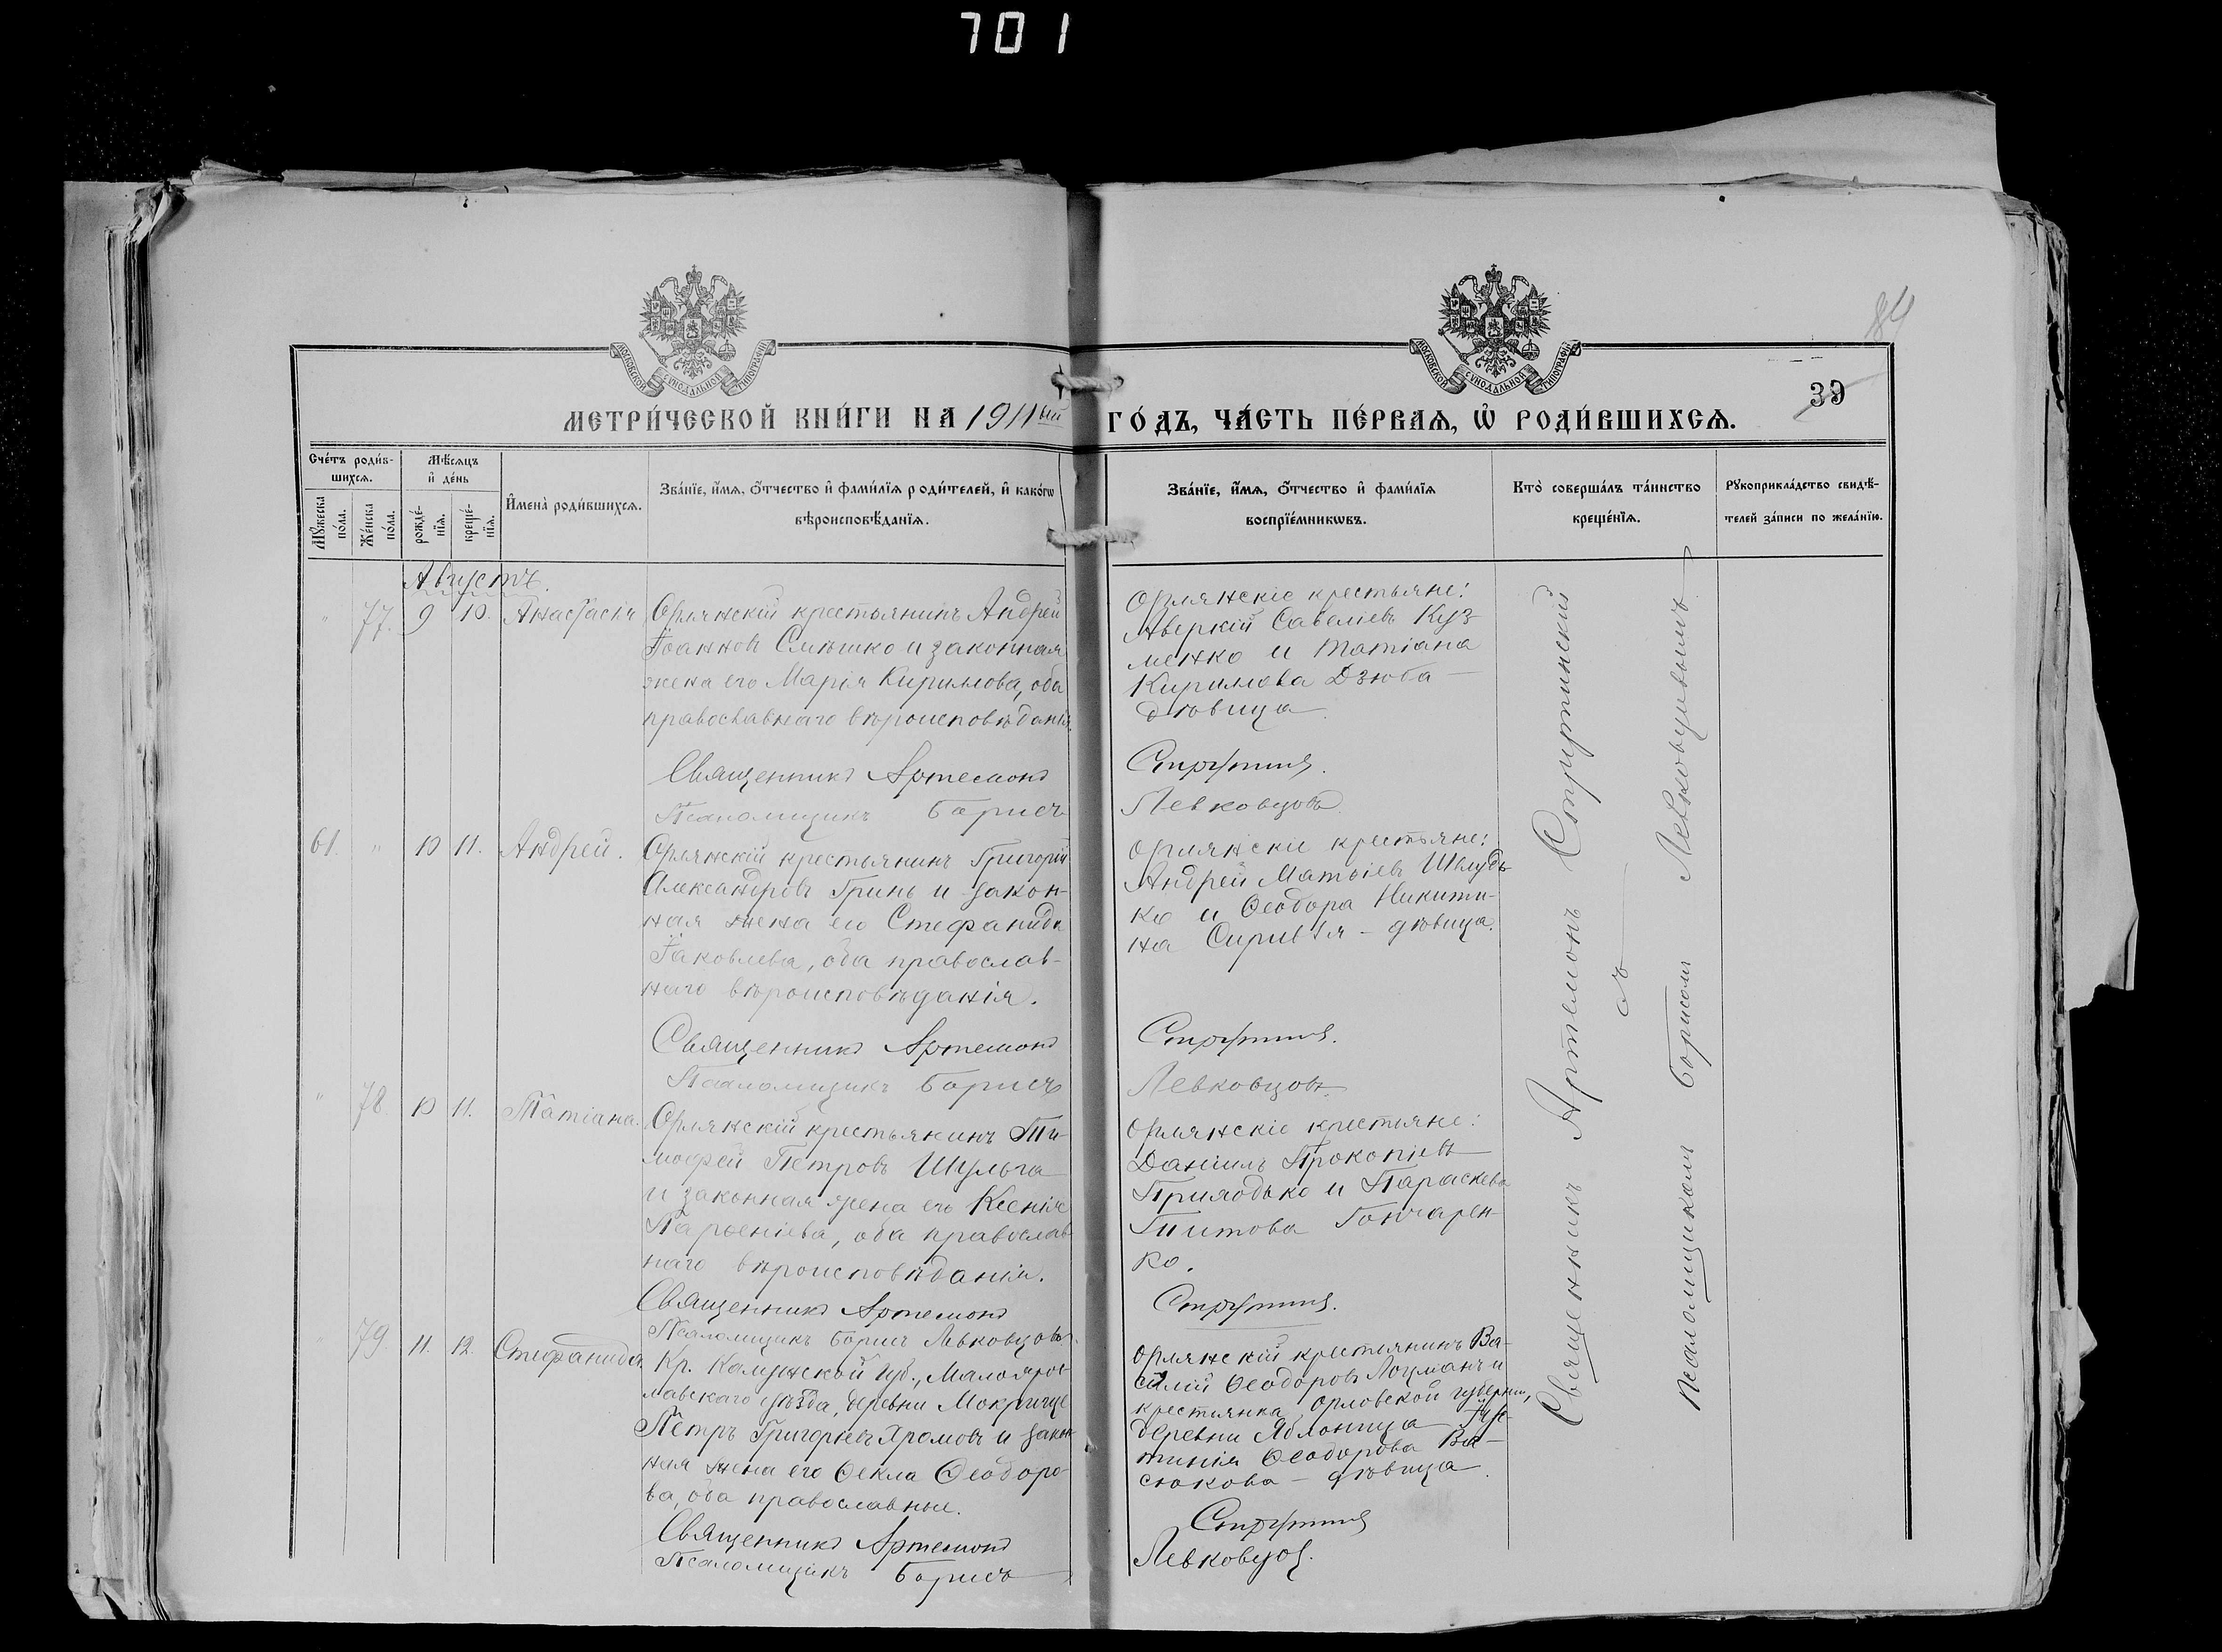 701
84
39
МОСКОВСКОЙ СѴНОДАЛЬНОЙ ТИПОГРАФІИ
МОСКОВСКОЙ СѴНОДАЛЬНОЙ ТИПОГРАФІИ
МЕТРИ́ЧЕСКОЙ КНИ́ГИ НА 1911ый ГО́ДЪ, ЧА́СТЬ ПЕ́РВАѦ, Ѡ҆ РОДИ́ВШИХСѦ.
Сче́тъ роди́в-
шихсѧ.
Мꙋ́жеска по́ла.
Же́нска по́ла.
Мѣ́сѧцъ
и҆ де́нь
рожде́-
нїѧ.
креще́-
нїѧ.
И҆мена̀ роди́вшихсѧ.
Зва́нїе, и҆́мѧ, ѻ҆́тчество и҆ фами́лїѧ роди́телей, и҆ како́гѡ
вѣроисповѣ́данїѧ.
Зва́нїе, и҆́мѧ, ѻ҆́тчество и҆ фами́лїѧ
воспрїе́мникѡвъ.
Кто̀ соверша́лъ та́инство
креще́нїѧ.
Рꙋкоприкла́дство свидѣ́-
телей за́писи по жела́нїю.
Августъ.
" 77. 9 10. Анастасія
Орлянскій крестьянинъ Андрей
Іоанновъ Смѣшко и законная
жена его Марія Кириллова, оба
православнаго вѣроисповѣданія.
Священникъ Артемонъ
Псаломщикъ Борисъ
Орлянскіе крестьяне:
Аверкій Савеліевъ Куз-
менко и Татіана
Кириллова Дзюба –
дѣвица.
Левковцовъ.
61. " 10 11. Андрей.
Орлянскій крестьянинъ Григорій
Александровъ Гринь и закон-
ная жена его Стефанида
Іаковлева, оба православ-
наго вѣроисповѣданія.
Священникъ Артемонъ
Псаломщикъ Борисъ
Орлянскіе крестьяне:
Андрей Матѳіевъ Шпудь-
ко и Ѳеодора Никити-
на – дѣвица.
Левковцовъ.
" 78. 10 11. Татіана.
Орлянскій крестьянинъ Ти-
мофей Петровъ Шульга
и законная жена его Ксенія
Парѳеніева, оба православ-
наго вѣроисповѣданія.
Священникъ Артемонъ
Псаломщикъ Борисъ Левковцовъ.
Орлянскіе крестьяне:
Даніилъ Прокопіевъ
Приходько и Параскева
Титова Гончарен-
ко.
" 79. 11. 12. Стефанида
Кр. Калужской губ., Малоярос-
лавскаго уѣзда, деревни Мокрище
Петръ Григорьевъ Хромовъ и закон-
ная жена его Ѳекла Ѳеодоро-
ва, оба православные.
Священникъ Артемонъ
Псаломщикъ Борисъ
Орлянскій крестьянинъ Ва-
силій Ѳеодоровъ Лоцманъ и
крестьянка Орловской губерніи,
деревни Яблоница Іус-
тинія Ѳеодорова Ва-
сюкова – дѣвица.
Левковцов.
Священникъ Артемонъ
съ
Псаломщикомъ Борисомъ Левковцевымъ